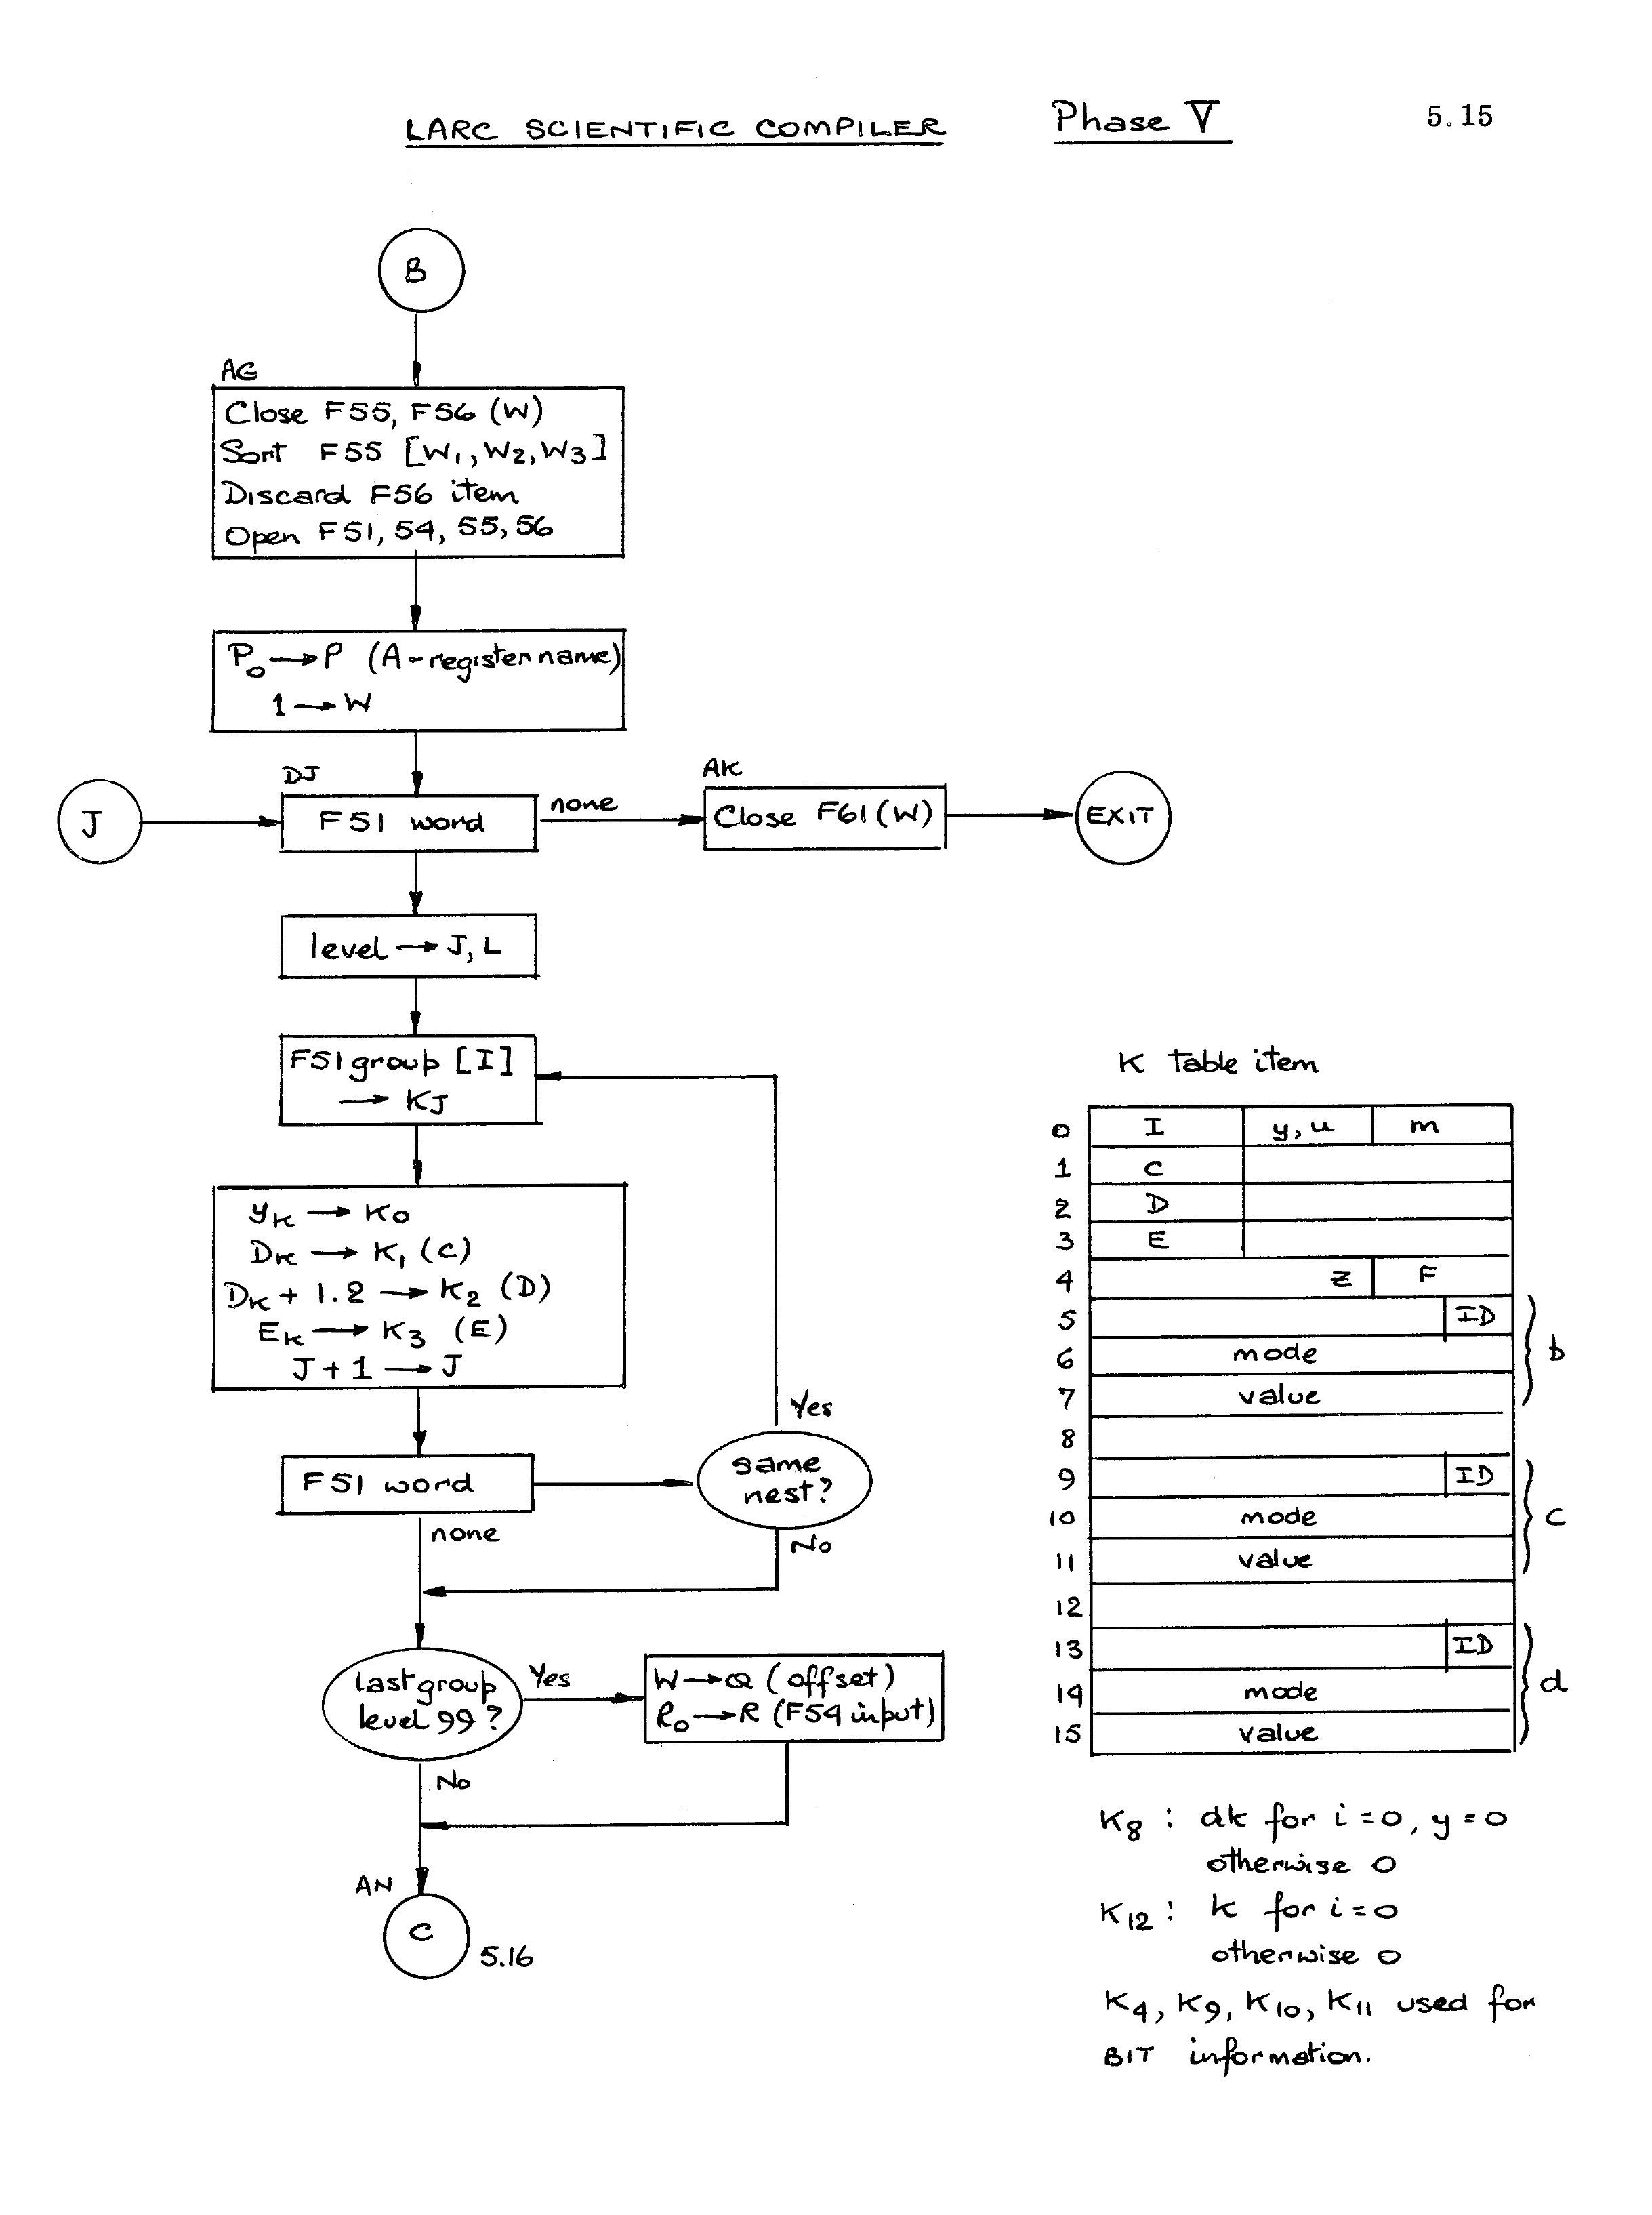 LARC SCIENTIFIC COMPILER Phase V 5.15
B
AG
Close F55, F56 (W)
Sort F55 [W₁, W₂, W₃]
Discard F56 item
Open F51, 54, 55, 56
P₀ → P (A-register name)
1 → W
J
DJ
F51 word
none
AK
Close F61 (W)
EXIT
level → J, L
F51 group [I]
→ KJ
yK → K₀
DK → K₁ (C)
DK + 1.2 → K₂ (D)
EK → K₃ (E)
J + 1 → J
F51 word
none
same
nest?
Yes
No
last group
level 99?
Yes
W → Q (offset)
R₀ → R (F54 input)
No
AN
C
5.16
K Table item
0 I y, u m
1 C
2 D
3 E
4 Z F
5 ID
6 mode
7 value
b
8
9 ID
10 mode
11 value
c
12
13 ID
14 mode
15 value
d
K₈ : dk for i = 0, y = 0
otherwise 0
K₁₂ : k for i = 0
otherwise 0
K₄, K₉, K₁₀, K₁₁ used for
BIT information.